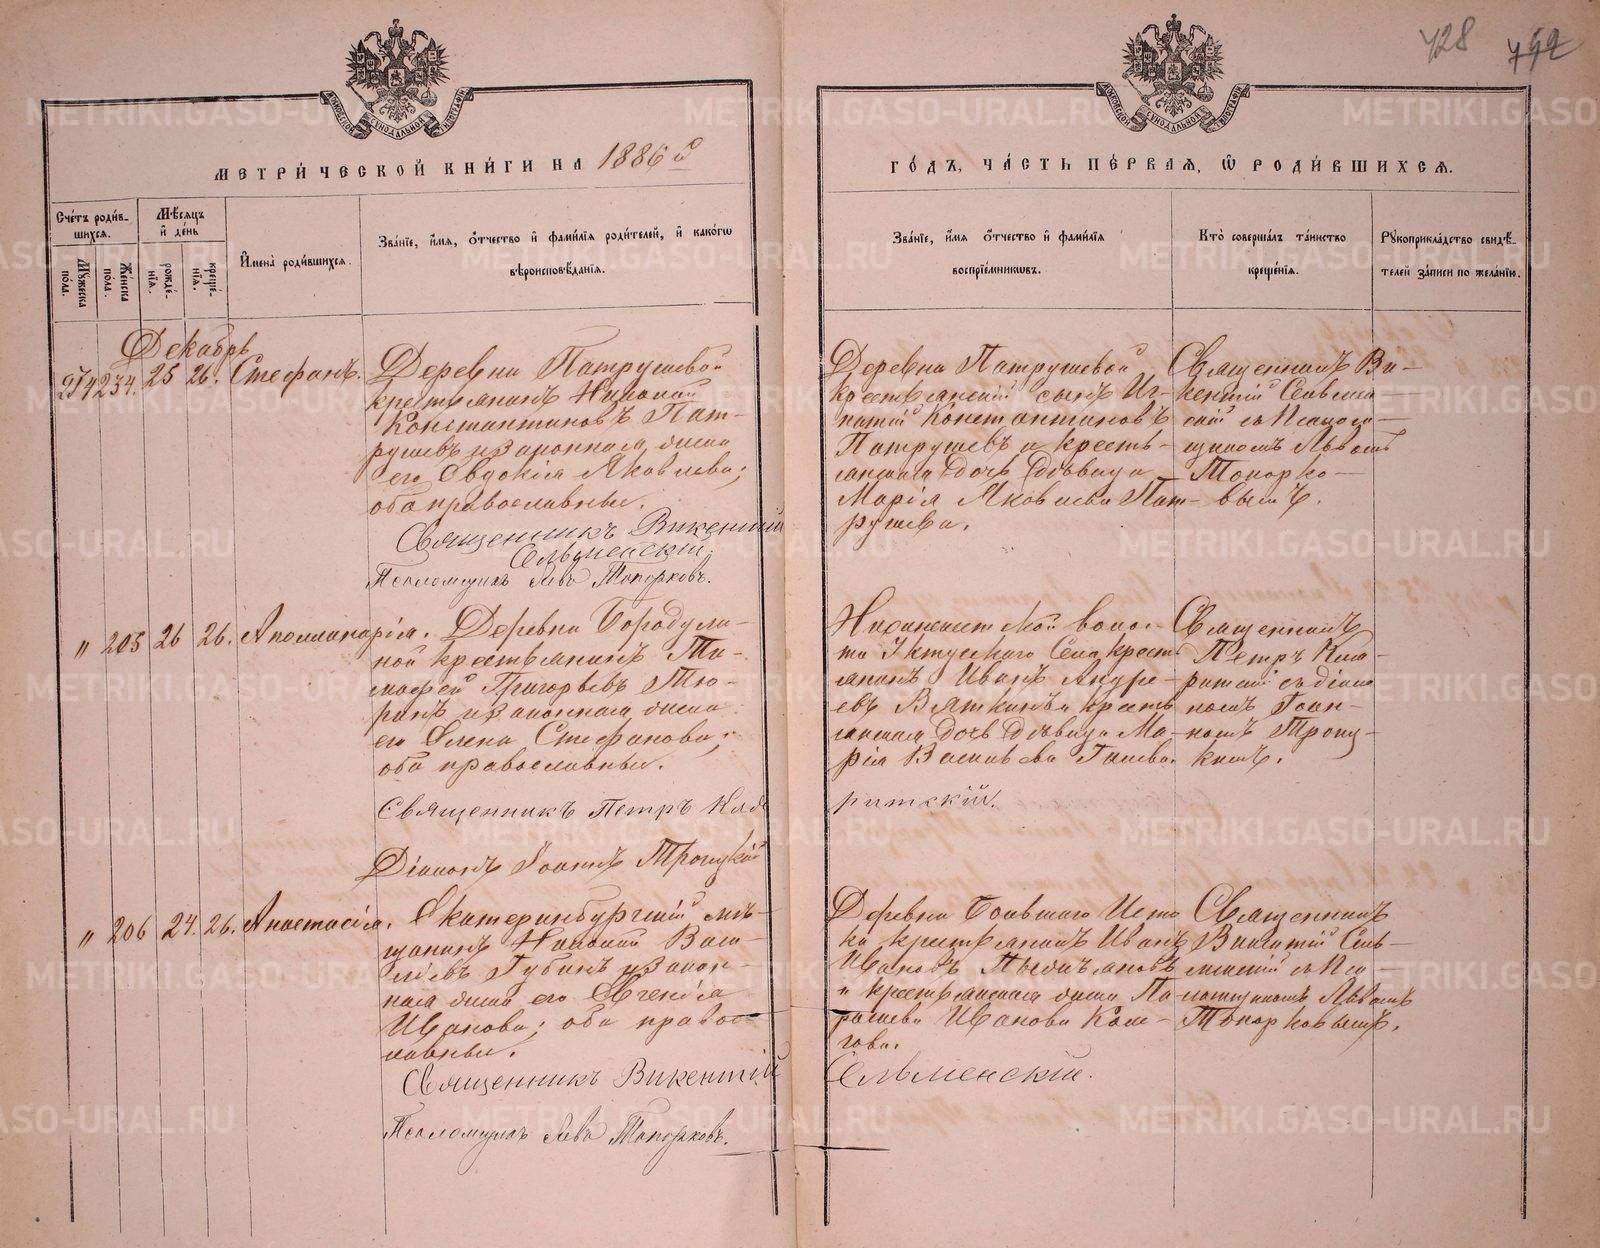 428 442
МОСКОВСКОЙ СѴНОДАЛЬНОЙ ТИПОГРАФІИ
МОСКОВСКОЙ СѴНОДАЛЬНОЙ ТИПОГРАФІИ
МЕТРИ́ЧЕСКОЙ КНИ́ГИ НА 1886 й
ГО́ДЪ, ЧА́СТЬ ПЕ́РВАЯ, Ѡ РОДИ́ВШИХСЯ.
Сче́тъ роди́в-
шихся.
Му́жеска по́ла.
Же́нска по́ла.
Мѣ́сяцъ
и҆ де́нь
рожде́-
нїя.
креще́-
нїя.
И҆мена̀ роди́вшихся.
Зва́нїе, и҆́мя, о҆́тчество и҆ фами́лїя роди́телей, и҆ како́гѡ
вѣроисповѣ́данїя.
Зва́нїе, и҆́мя о҆́тчество и҆ фами́лїя
воспрїе́мникѡвъ.
Кто̀ соверша́лъ та́инство
креще́нїя.
Рꙋкоприкла́дство свидѣ́-
телей за́писи по жела́нїю.
Декабрь
234. 25 26. Стефанъ.
Деревни Патрушевой
крестьянинъ Николай
Константиновъ Пат-
рушевъ и законная жена
его Евдокія Яковлева;
оба православные.
Священникъ Викентій
Сельменскій.
Псаломщикъ Левъ Топорковъ.
Деревни Патрушевой
крестьянскій сынъ Иг-
натій Константиновъ
Патрушевъ и кресть-
янская дочь дѣвица
Марія Яковлева Пат-
рушева.
Священникъ Ви-
кентій Сельмен
скій съ Псалом-
щикомъ Львомъ
Топорко-
вымъ.
" 205 26 26. Аполлинарія.
Деревни Бородули-
ной крестьянинъ Ти-
мофей Григорьевъ Тю-
ринъ и законная жена
его Елена Стефанова;
оба православные.
Священникъ Петръ
Діаконъ Іоаннъ Троицкій
воло-
сти Иктускаго Села крест
янинъ Иванъ Андре-
евъ Вяткинъ и кресть
янская дочь дѣвица Ма-
рія Васильева
ритскій.
Священникъ
Петръ
ритскій съ діако
номъ Іоан-
номъ Троиц-
кимъ.
" 206 24. 26. Анастасія.
Екатеринбургскій мѣ-
щанинъ Николай Васи-
льевъ Губинъ и закон-
ная жена его Евгенія
Иванова; оба правос-
лавные.
Священникъ Викентій
Сельменскій.
Псаломщикъ Левъ Топорковъ.
Деревни Большаго Исто
ка крестьянинъ Иванъ
Ивановъ
и крестьянская жена Па-
раскева Иванова
Священникъ
Викентій Сель-
менскій съ Пса
ломщикомъ Львомъ
Топорковымъ.
METRIKI.GASO-URAL.RU